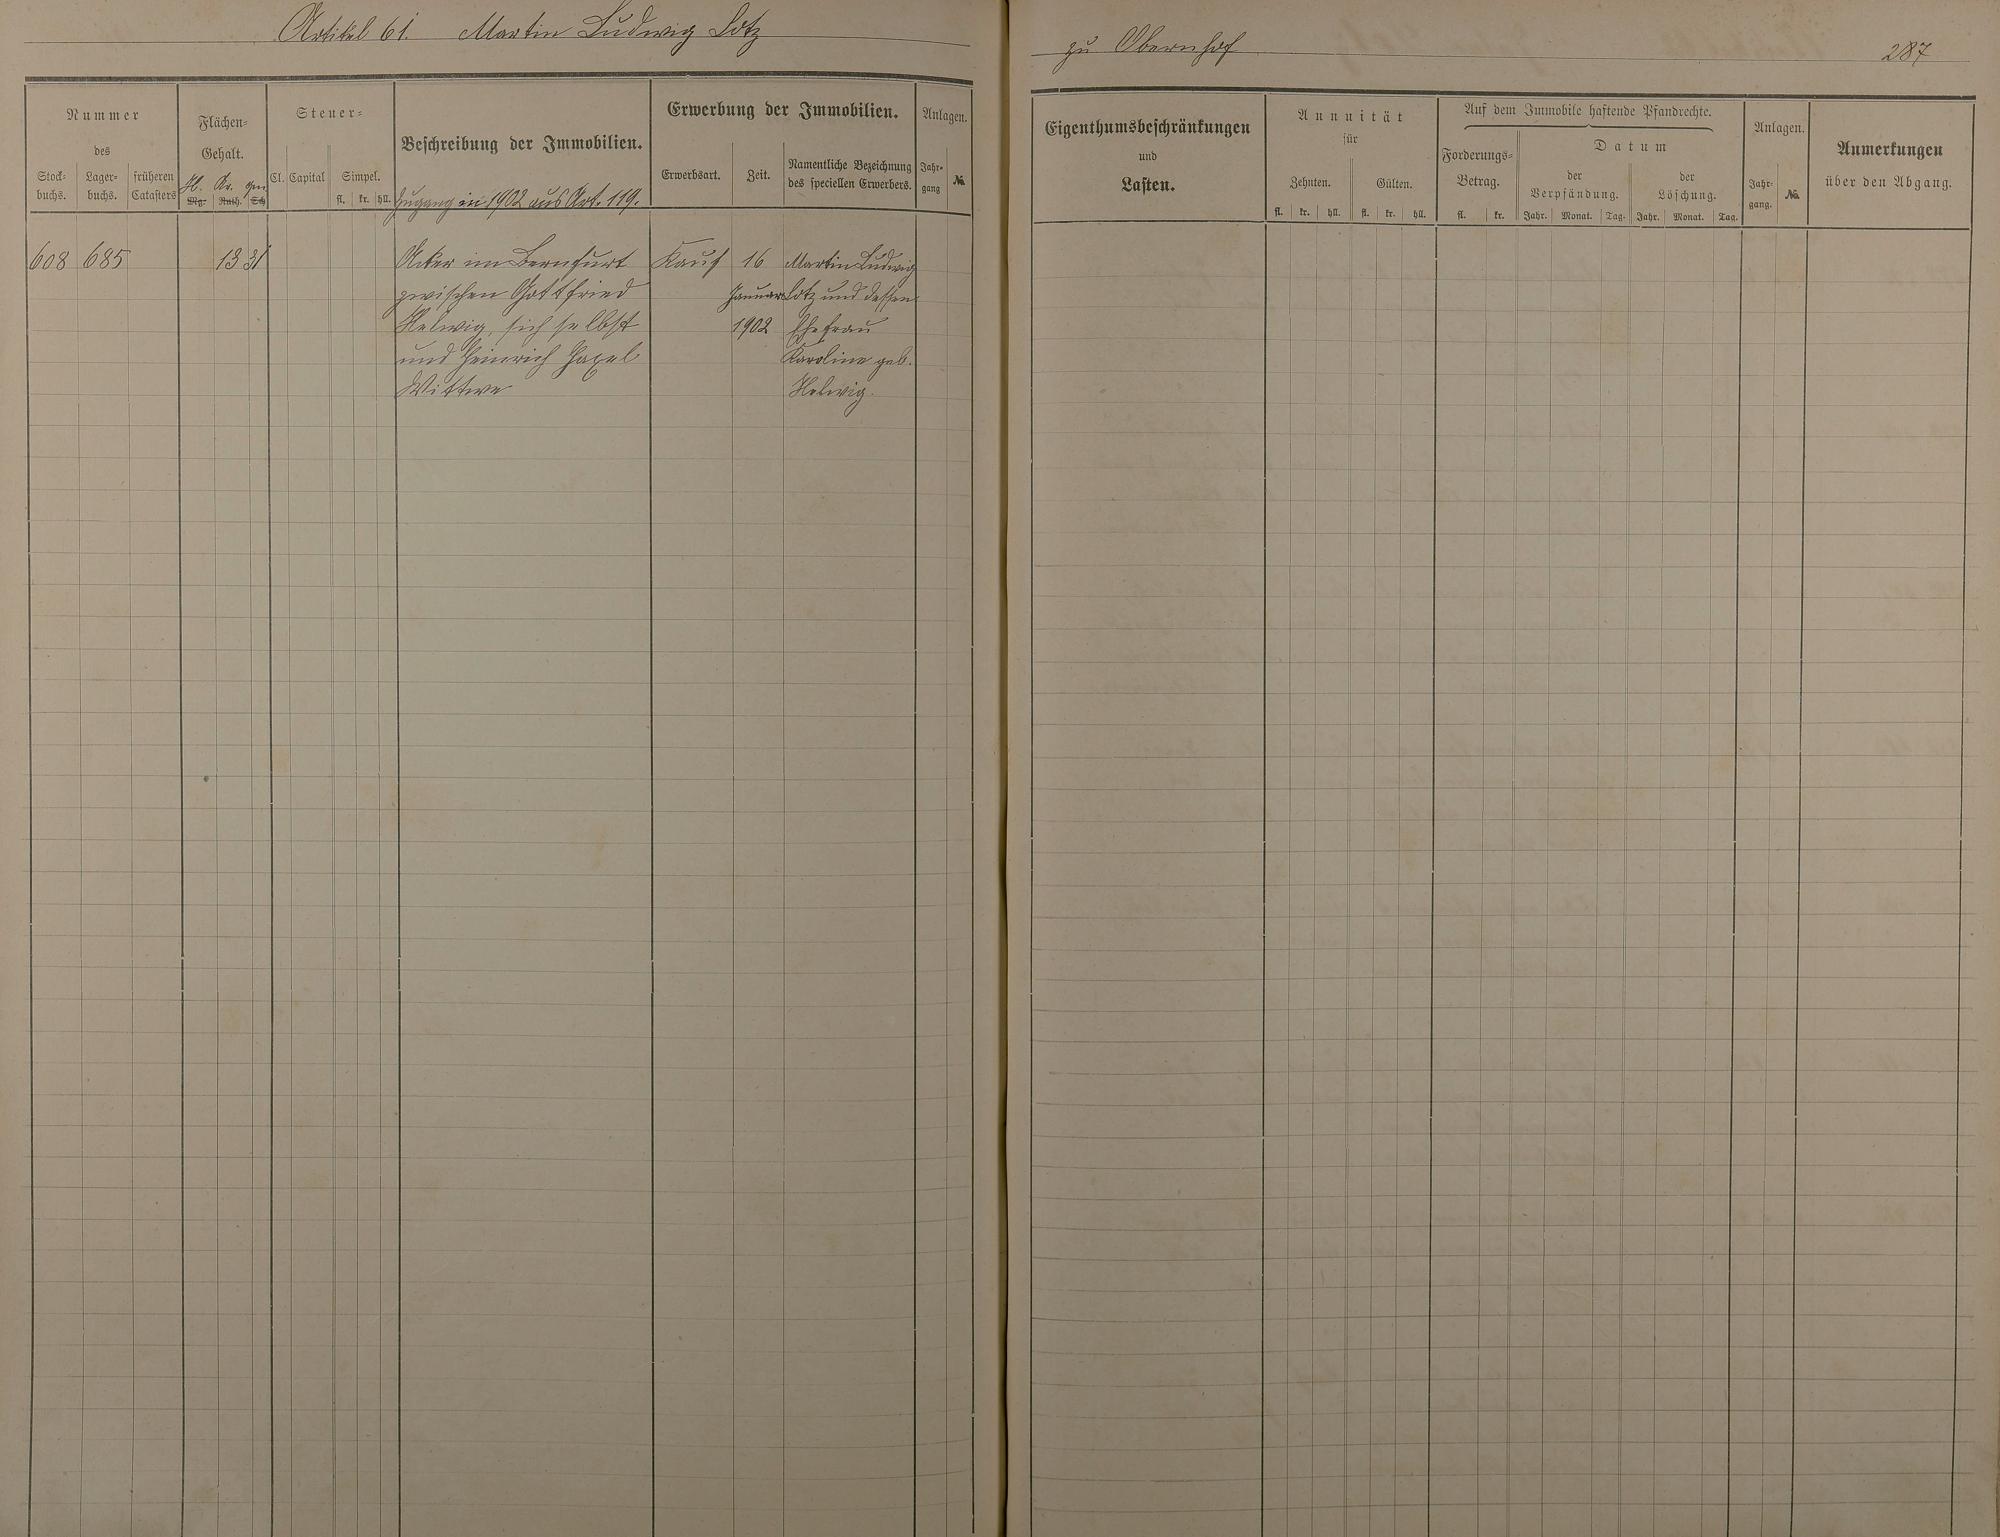 Artikel 61. Martin Ludwig Lotz
zu Obernhof
287
Nummer
des
Stock-
buchs.
Lager-
buchs.
früheren
Catasters
Flächen-
Gehalt.
H. Ar. qm
Mg. Ruth. Sch
Steuer-
Cl. Capital
Simpel.
fl. kr. hll.
Beschreibung der Immobilien.
Zugang in 1902 aus Art. 119.
Erwerbung der Immobilien.
Erwerbsart.
Zeit.
Namentliche Bezeichnung
des speciellen Erwerbers.
Anlagen.
Jahr-
gang
№
608 685 13 31 Acker im Bernfurt Kauf 16 Martin Ludwig
zwischen Gottfried Januar Lotz und dessen
Helwig, sich selbst 1902 Ehefrau
und Heinrich Karoline geb.
Wittwe Helwig.
Eigenthumsbeschränkungen
und
Lasten.
Annuität
für
Zehnten.
Gülten.
fl. kr. hll. fl. kr. hll.
Auf dem Immobile haftende Pfandrechte.
Forderungs-
Betrag.
fl. kr.
Datum
der
Verpfändung.
Jahr. Monat. Tag.
der
Löschung.
Jahr. Monat. Tag.
Anlagen.
Jahr-
gang.
№.
Anmerkungen
über den Abgang.